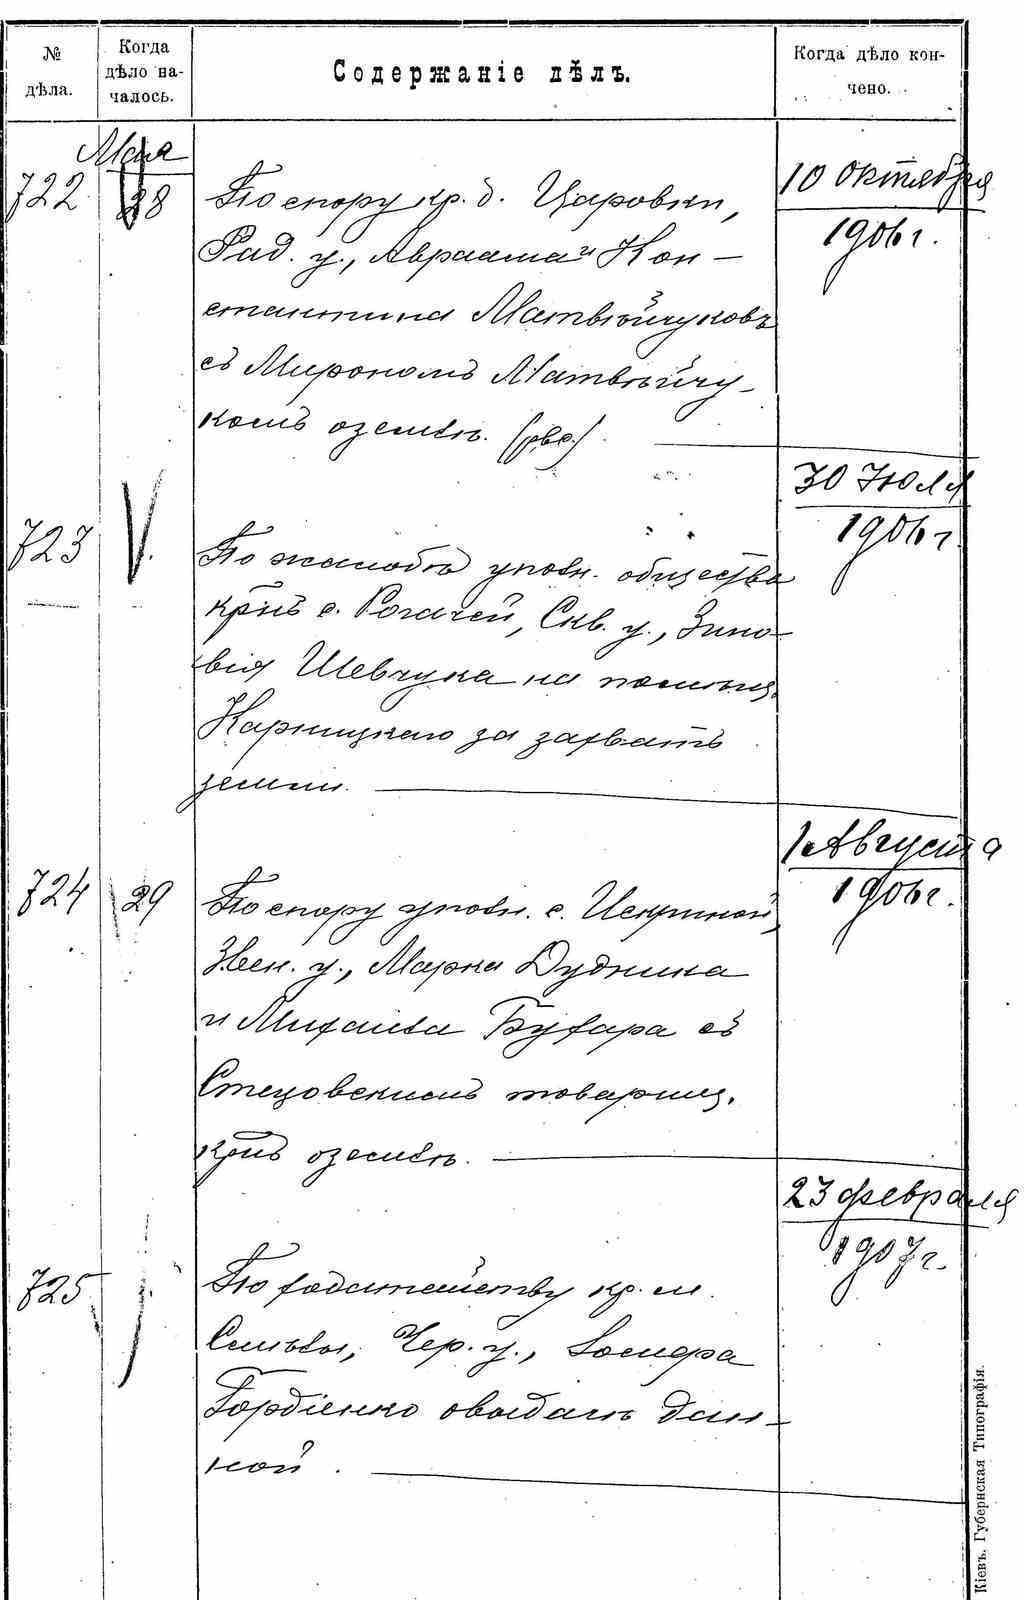 № дѣла.
Когда дѣло на-
чалось.
Содержаніе дѣлъ.
Когда дѣло кон-
чено.
Мая
722
28
По спору кр. д. Царовки,
Рад. у., Авраама и Кон-
стантина Матвѣйчуковъ
съ Мирономъ Матвѣйчу-
комъ о землѣ.
10 Октября
1906 г.
723
По жалобѣ уполн. общества
крнъ с. Рогачей, Скв. у., Зино-
вія Шевчука на помѣщ.
Карницкаго за захватъ
земли.
30 Іюля
1906 г.
724
29
По спору уполн. с. Искриной,
Звен. у., Марка Дудника
и Михаила Бухара съ
Стецовскимъ товарищ.
крнъ о землѣ.
1 Августа
1906 г.
725
По ходатайству кр. м.
Смѣлы, Чер. у., Іосифа
Гордіенко о выдачѣ дан-
ной.
23 февраля
1907 г.
Кіевъ. Губернская Типографія.